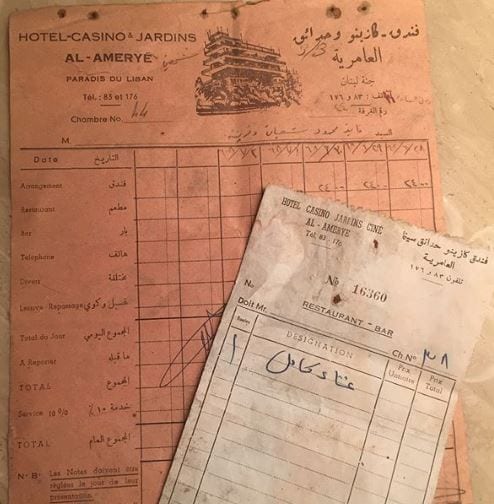 HOTEL-CASINO & JARDINS
AL-AMERYÉ
PARADIS DU LIBAN
Tél.: 83 et 176
Chambre No. 44
فندق - كازينو وحدائق
العامرية
جنة لبنان
تلفون: ٨٣ و ١٧٦
رقم الغرفة
M
السيد
Date التاريخ
Arrangement فندق ٢٤٠٠ ٢٤٠٠ ٢٤٠٠
Restaurant مطعم
Bar بار
Téléphone هاتف
Divers مختلفة
Lessive-Repassage غسيل وكوي
Total du Jour المجموع اليومي
A Reporter ما قبله
TOTAL المجموع
Service 10 % خدمة ١٠ %
TOTAL المجموع العام
N. B. Les Notes doivent être
réglées le jour de leur
présentation.
HOTEL CASINO JARDINS CINÉ
AL-AMERYE
Tél. 83 176
فندق كازينو حدائق سينما
العامرية
تلفون ٨٣ و ١٧٦
No 16360
N.
RESTAURANT - BAR
Doit Mr.
Ch No ٣٨
DESIGNATION
Prix Unitaire
Prix Total
١ غداء كامل